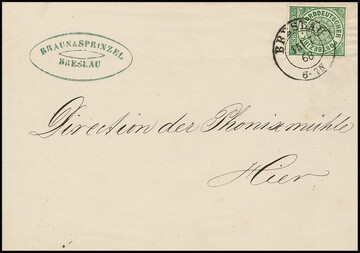 BRAUN & SPRINZEL
BRESLAU
BRESLAU
68
6-7N
NORDDEUTSCHER
Direction der Phönixmühle
Hier